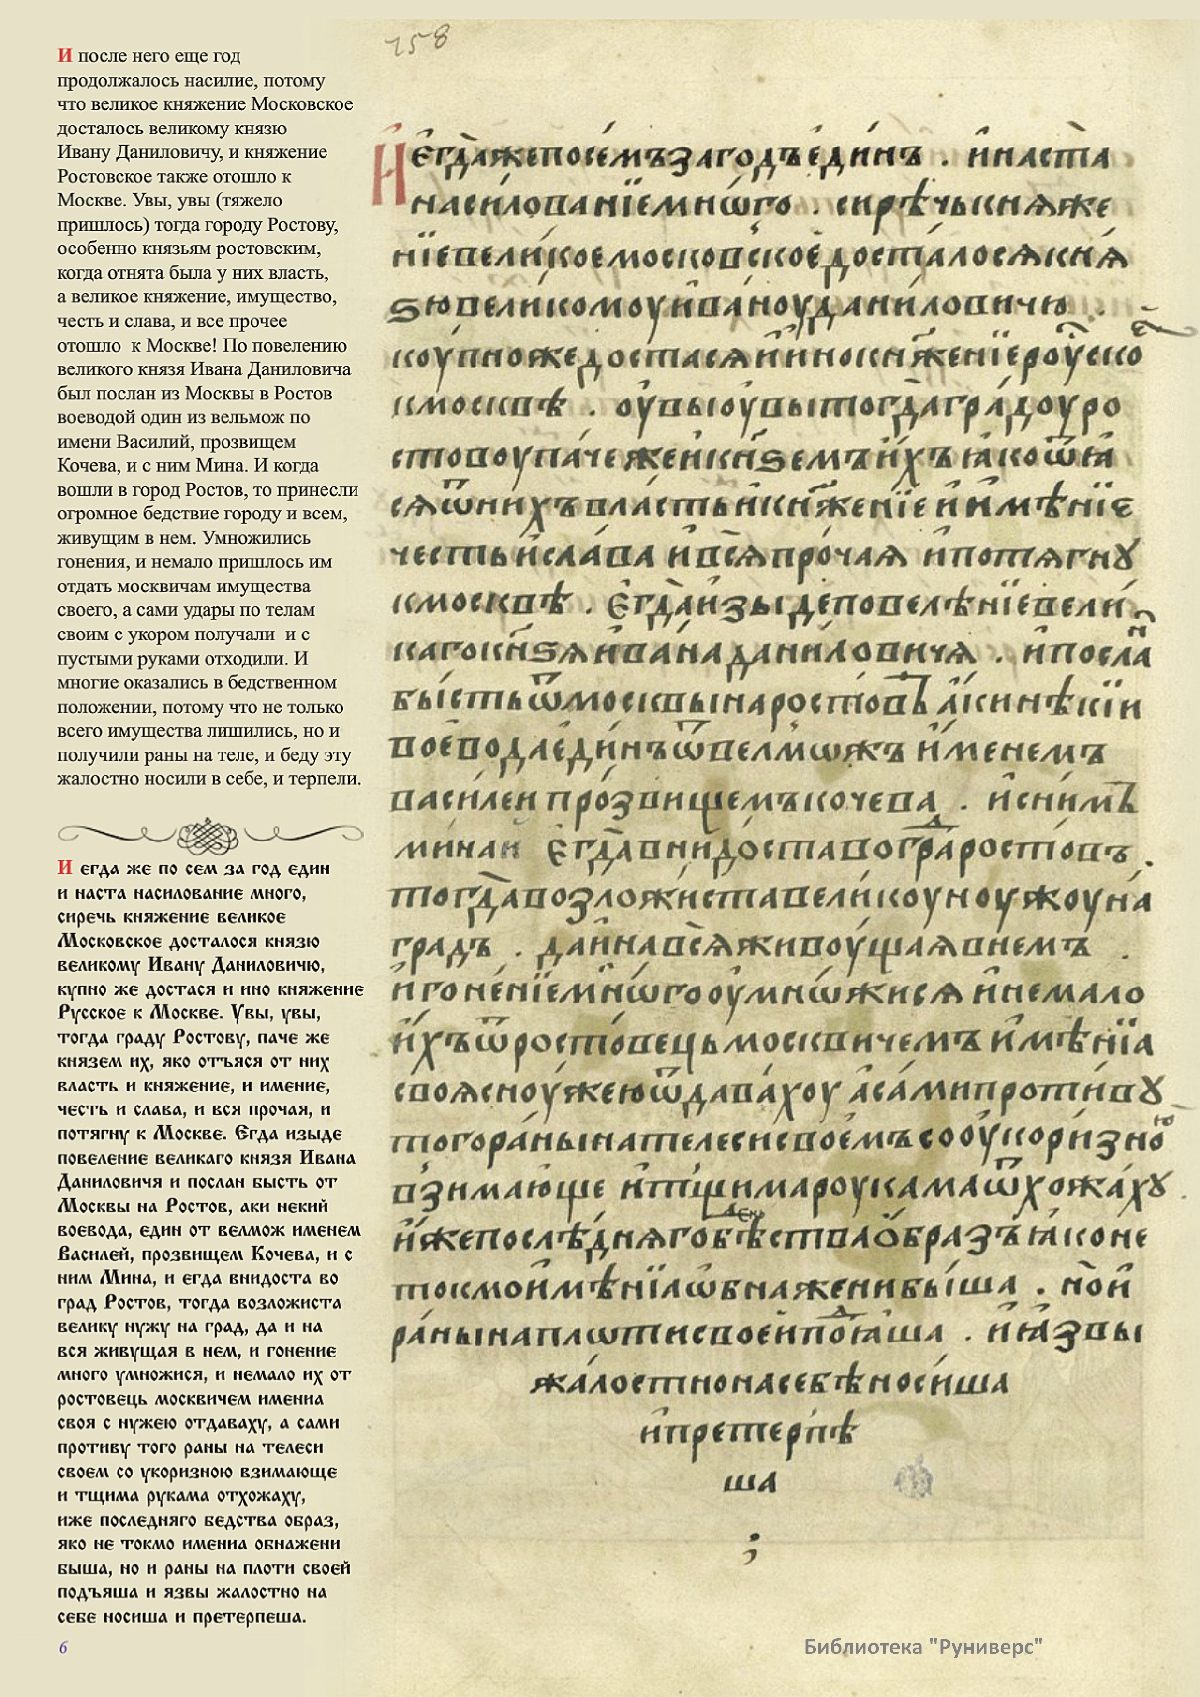 И после него еще год
продолжалось насилие, потому
что великое княжение Московское
досталось великому князю
Ивану Даниловичу, и княжение
Ростовское также отошло к
Москве. Увы, увы (тяжело
пришлось) тогда городу Ростову,
особенно князьям ростовским,
когда отнята была у них власть,
а великое княжение, имущество,
честь и слава, и все прочее
отошло к Москве! По повелению
великого князя Ивана Даниловича
был послан из Москвы в Ростов
воеводой один из вельмож по
имени Василий, прозвищем
Кочева, и с ним Мина. И когда
вошли в город Ростов, то принесли
огромное бедствие городу и всем,
живущим в нем. Умножились
гонения, и немало пришлось им
отдать москвичам имущества
своего, а сами удары по телам
своим с укором получали и с
пустыми руками отходили. И
многие оказались в бедственном
положении, потому что не только
всего имущества лишились, но и
получили раны на теле, и беду эту
жалостно носили в себе, и терпели.
И егда же по сем за год един
и наста насилование много,
сиречь княжение великое
Московское досталося князю
великому Ивану Даниловичю,
купно же достася и ино княжение
Русское к Москве. Увы, увы,
тогда граду Ростову, паче же
князем их, яко отъяся от них
власть и княжение, и имение,
честь и слава, и вся прочая, и
потягну к Москве. Егда изыде
повеление великаго князя Ивана
Даниловичя и послан бысть от
Москвы на Ростов, аки некий
воевода, един от велмож именем
Василей, прозвищем Кочева, и с
ним Мина, и егда внидоста во
град Ростов, тогда возложиста
велику нужу на град, да и на
вся живущая в нем, и гонение
много умножися, и немало их от
ростовець москвичем имениа
своя с нужею отдаваху, а сами
противу того раны на телеси
своем со укоризною взимающе
и тщима рукама отхожаху,
иже последняго бедства образ,
яко не токмо имениа обнажени
быша, но и раны на плоти своей
подъяша и язвы жалостно на
себе носиша и претерпеша.
6
758
И
егдажепосемъзагодъединъ . инаста
насилованїемнѡго . сирѣчькнѧже
нїевеликоемосковскоедосталосѧкнѧ
ѕювеликомоуиваноуданиловичю .
коупножедостасѧииннокнѧженїероуско
кмосквѣ . оувыоувытогдаградоуро
стовоупачежеикнѕемъихъꙗкоѿꙗ
сѧѿнихъвластьикнѧженїеиимѣнїе
честьиславаивсѧпрочая ипотягнꙋ
кмосквѣ . егдаизыдеповелѣнїевели
кагокнѕѧиванаданиловичѧ . ипосла
бытьѿмосквынаростовъакинѣкїи
воеводаединъѿвелмѡжъ именемъ
василеипрозвищемъкочева . иснимъ
минаи егдавнидоставоградростовъ .
тогдавозложиставеликоуноужоуна
градъ . даинавсѧживоущаявнемъ .
игоненїемнѡгооумнѡжисѧ инемало
ихъѿростовецьмосквичемъимѣнїа
своясноужеюѿдавахоу асамипротивꙋ
тогоранынателесисвоемъсооукоризною
взимающе итщимароукамаѿхожахꙋ .
ижепослѣднягобѣстваобразъꙗконе
токмоимѣнїаѡбнаженибыша . нои
ранынаплѡтисвоеиподꙗша . иꙗзвы
жалостнонасебѣносиша
ипретерпѣ
ша
;
Библиотека "Руниверс"